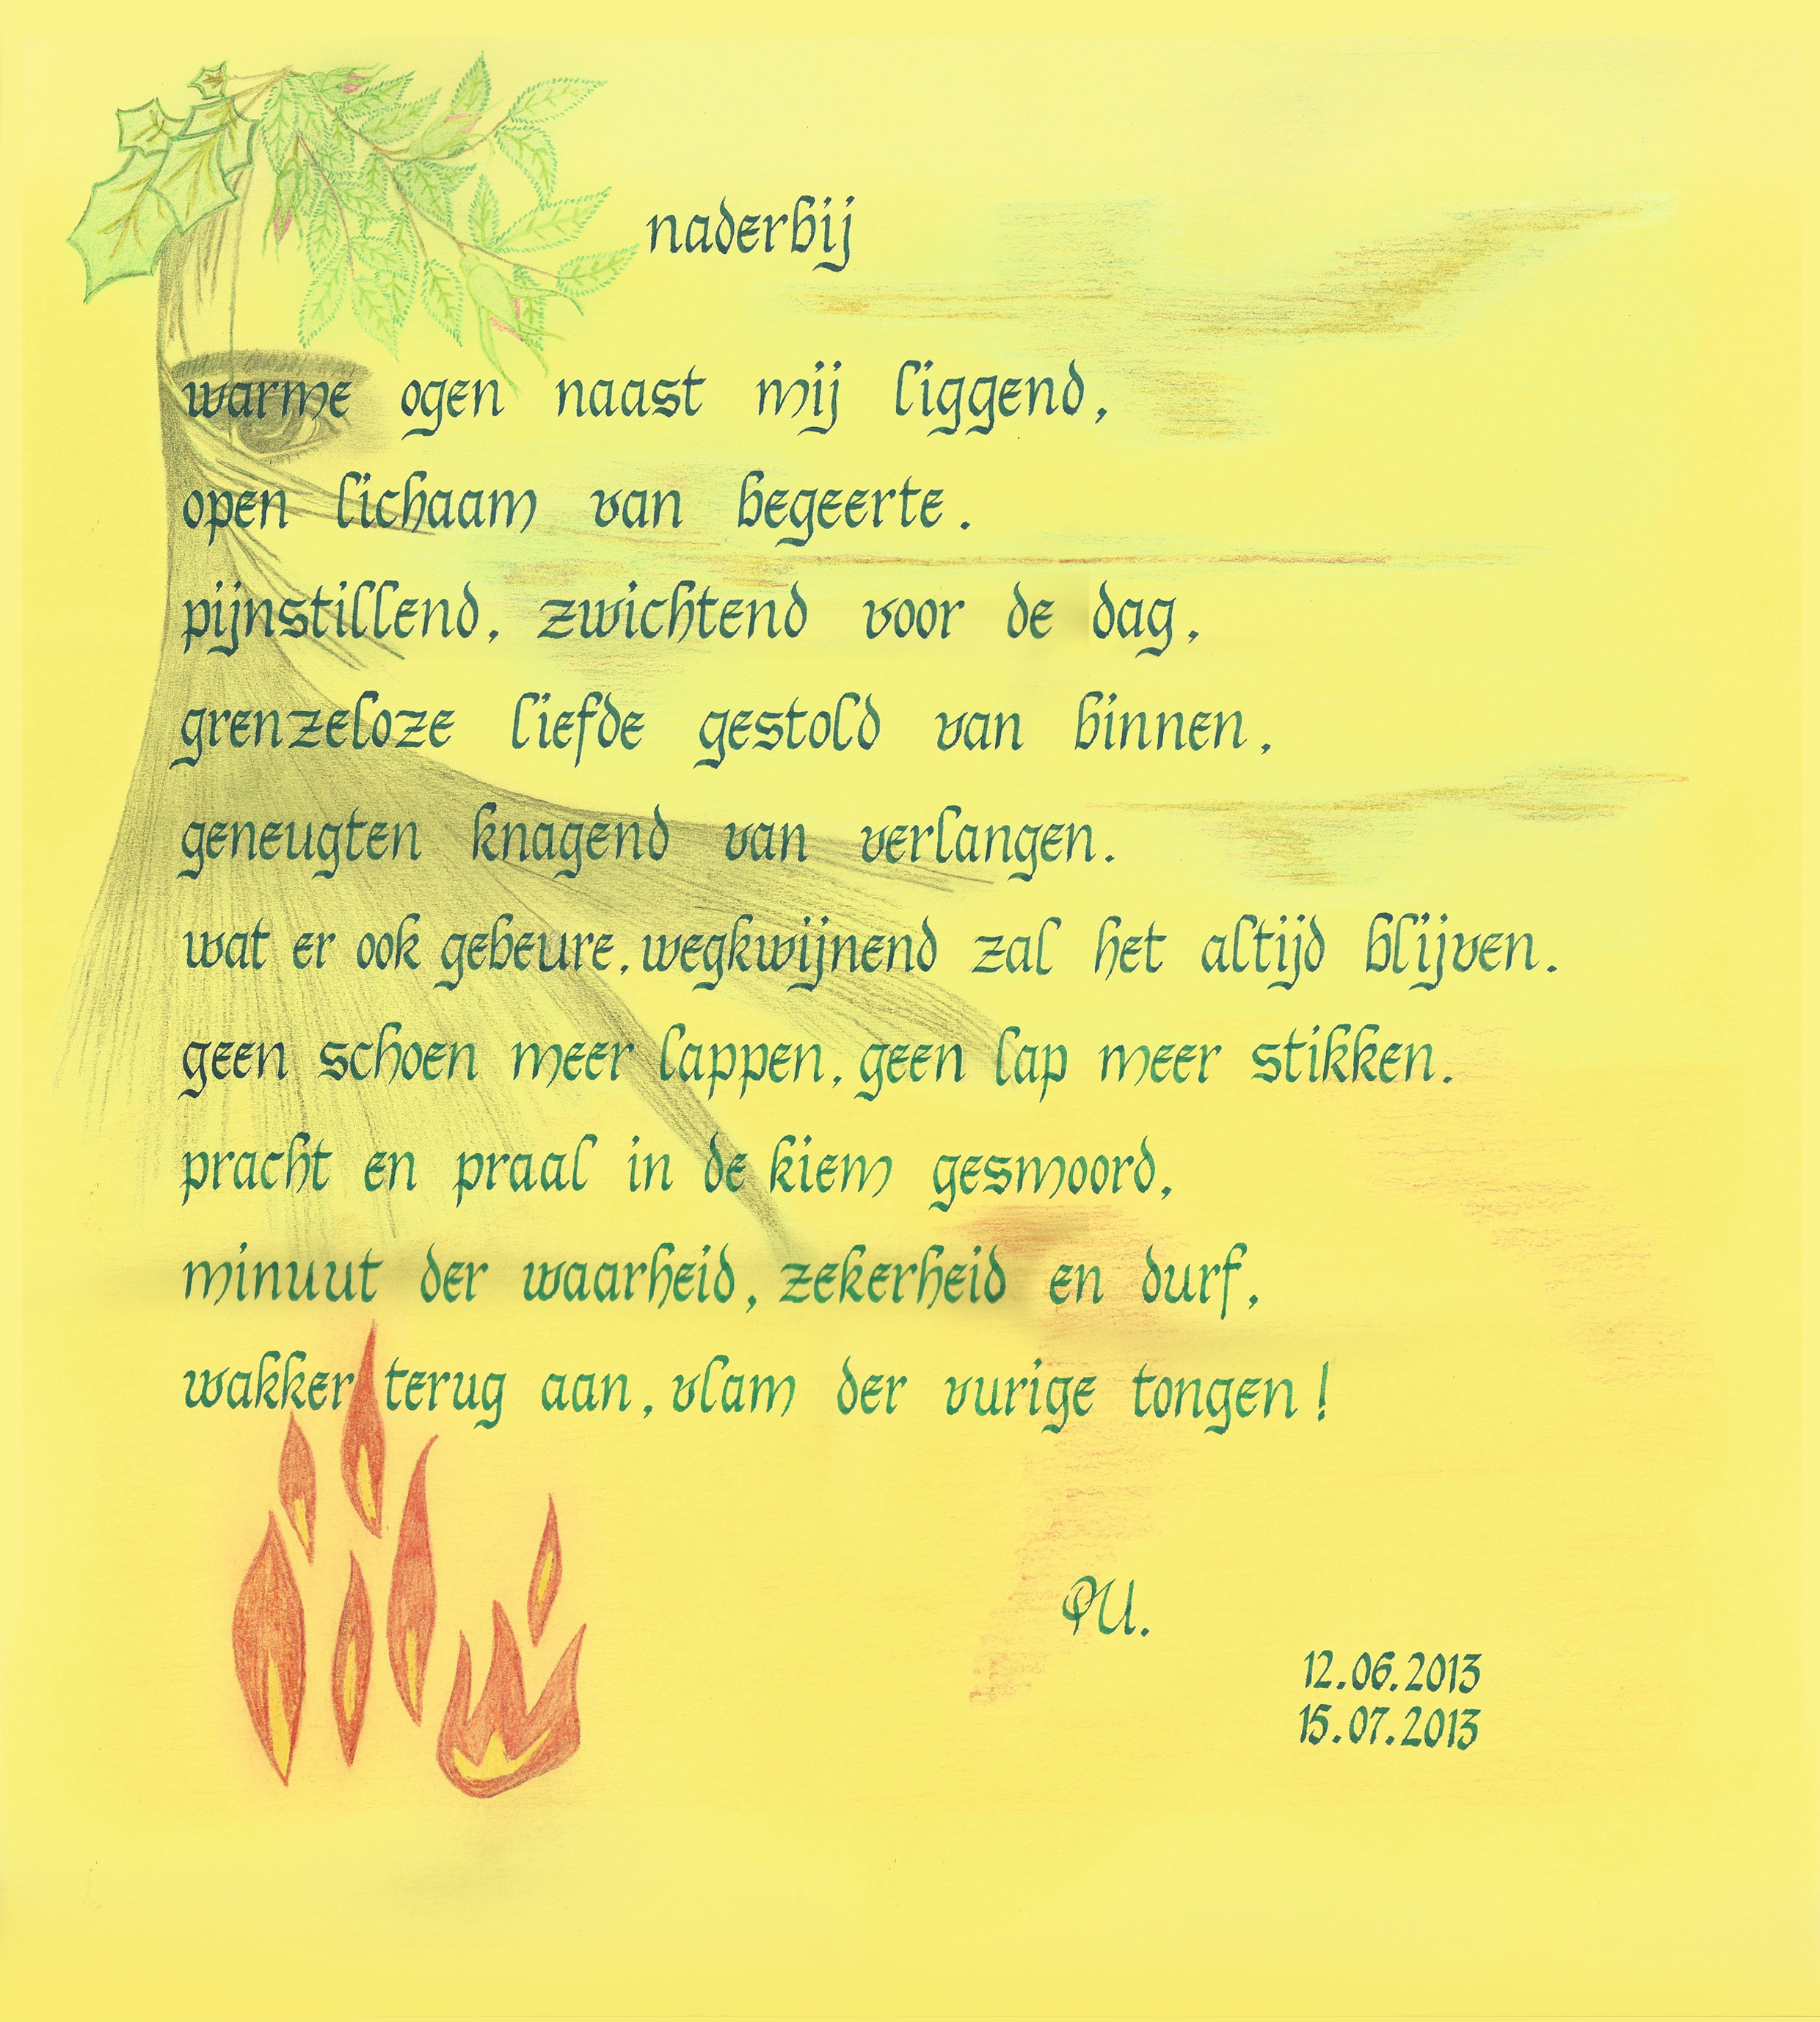 naderbij
warme ogen naast mij liggend,
open lichaam van begeerte.
pijnstillend, zwichtend voor de dag,
grenzeloze liefde gestold van binnen,
geneugten knagend van verlangen.
wat er ook gebeure, wegkwijnend zal het altijd blijven.
geen schoen meer lappen, geen lap meer stikken.
pracht en praal in de kiem gesmoord,
minuut der waarheid, zekerheid en durf,
wakker terug aan, vlam der vurige tongen!
PU.
12.06.2013
15.07.2013